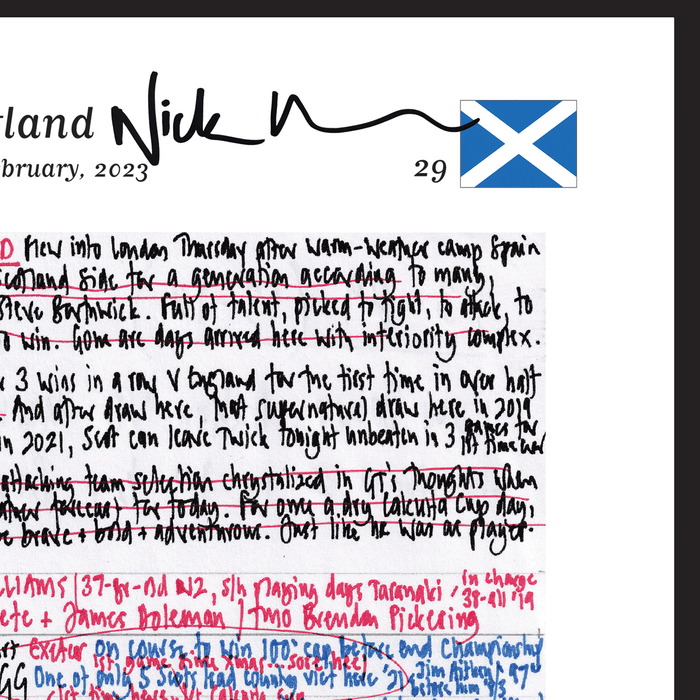 tland Nick
bruary, 2023 29
D Flew into London Thursday after warm-weather camp Spain
Scotland side for a generation according to many,
Steve Borthwick. Full of talent, picked to fight, to attack, to
to win. Gone are days arrived here with inferiority complex.
3 wins in a row V England for the first time in over half
. And after draw here, that supernatural draw here in 2019
in 2021, Scot can leave Twick tonight unbeaten in 3 games for
1st time ever
attacking team selection chrystalized in GT's thoughts when
ather forecast for today. For once a dry Calcutta Cup day,
be brave + bold + adventurous. Just like he was as player.
LLIAMS | 37-yr-old NZ, s/h playing days Taranaki / in charge
38-all '19
ete + James Doleman | TMO Brendon Pickerill
Exeter On course to win 100th cap before end Championship
1st game since Xmas... sore heel
GG One of only 5 Scots lead country vict here '21. Jim Aitken '83
before him
time here V Calcutta Cup